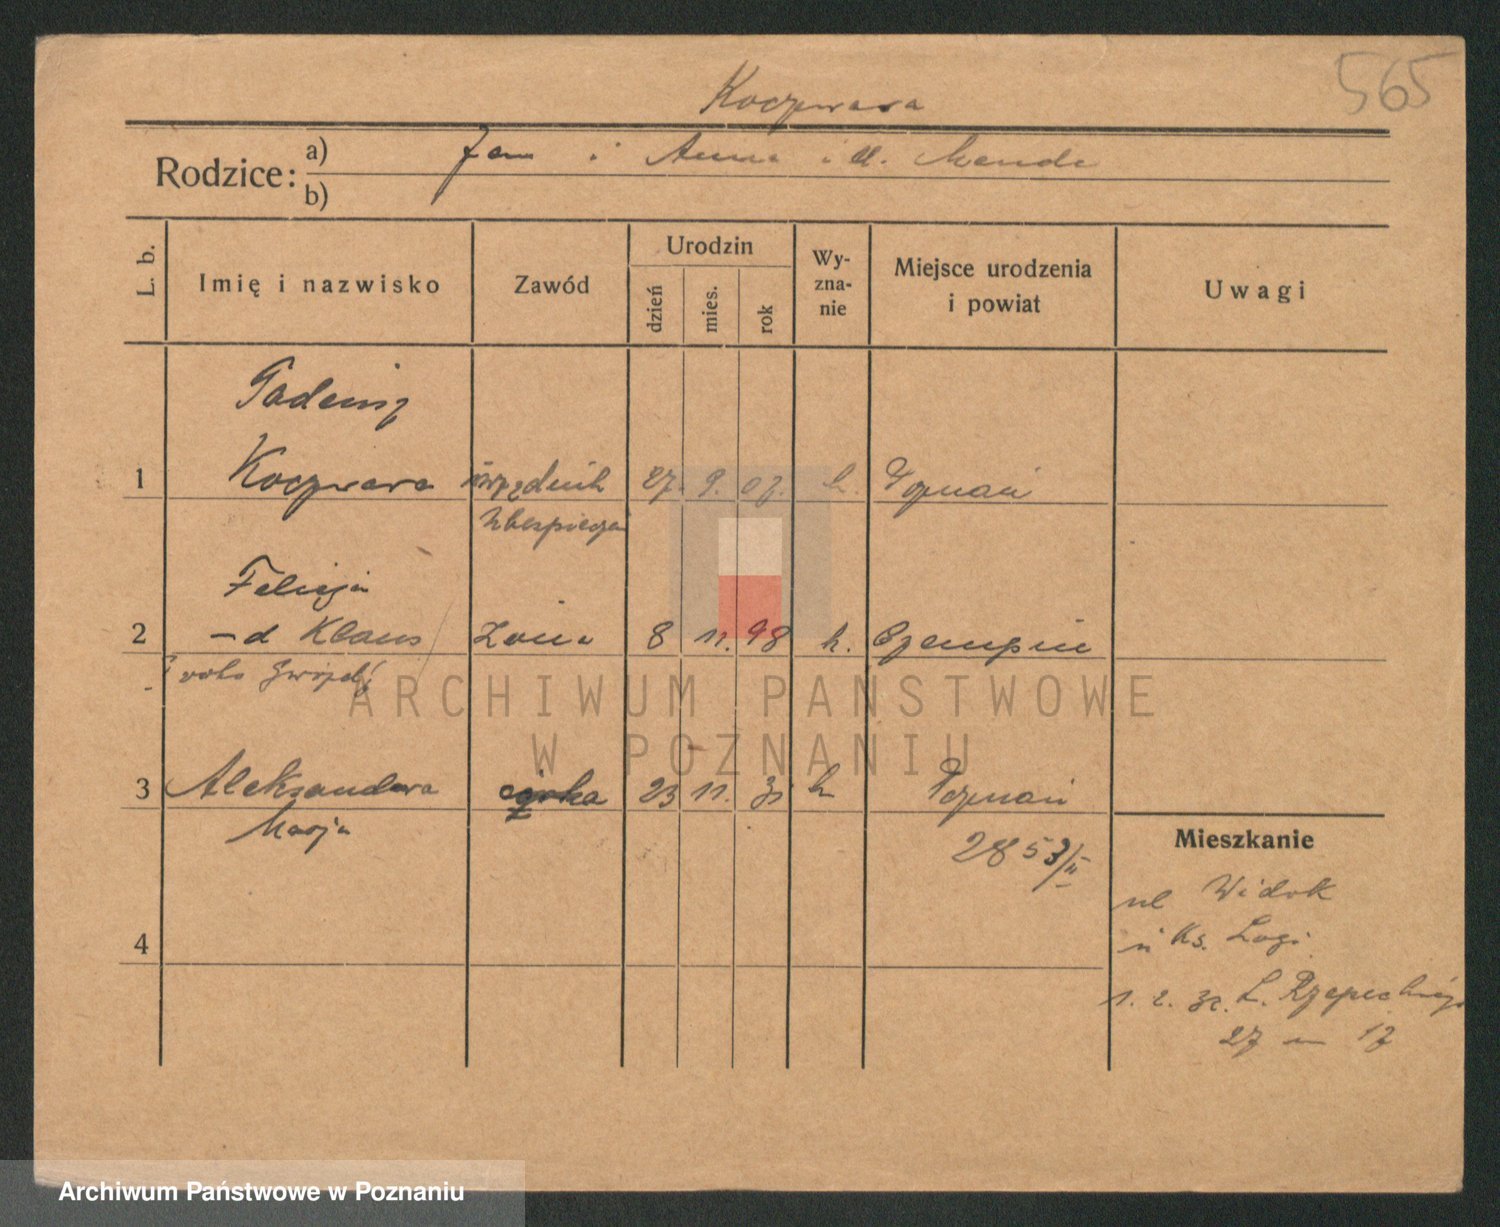 565
Koczwara
Rodzice: a) Jan i Anna
b)
L. b. Imię i nazwisko Zawód Urodzin dzień mies. rok Wy-zna-nie Miejsce urodzenia i powiat Uwagi
Tadeusz
1 Koczwara urzędnik 27. 9. 07. k. Poznań
Felicja
2 –d Klaus żona 8 11. 98 k. Czempiń
ARCHIWUM PAŃSTWOWE
W POZNANIU
3 Aleksandra córka 23 11. 31 k Poznań
Marja
2853/II
Mieszkanie
ul Widok
4
u Ks. Logi
1. 2. 32. L. Rzepeckiego
27 m 17
Archiwum Państwowe w Poznaniu